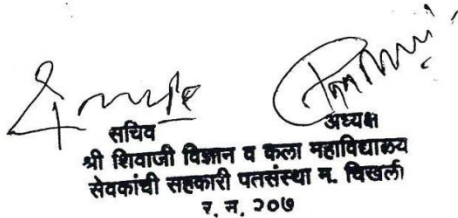 सचिव अध्यक्ष
श्री शिवाजी विज्ञान व कला महाविद्यालय
सेवकांची सहकारी पतसंस्था म. चिखली
र. न. २०७